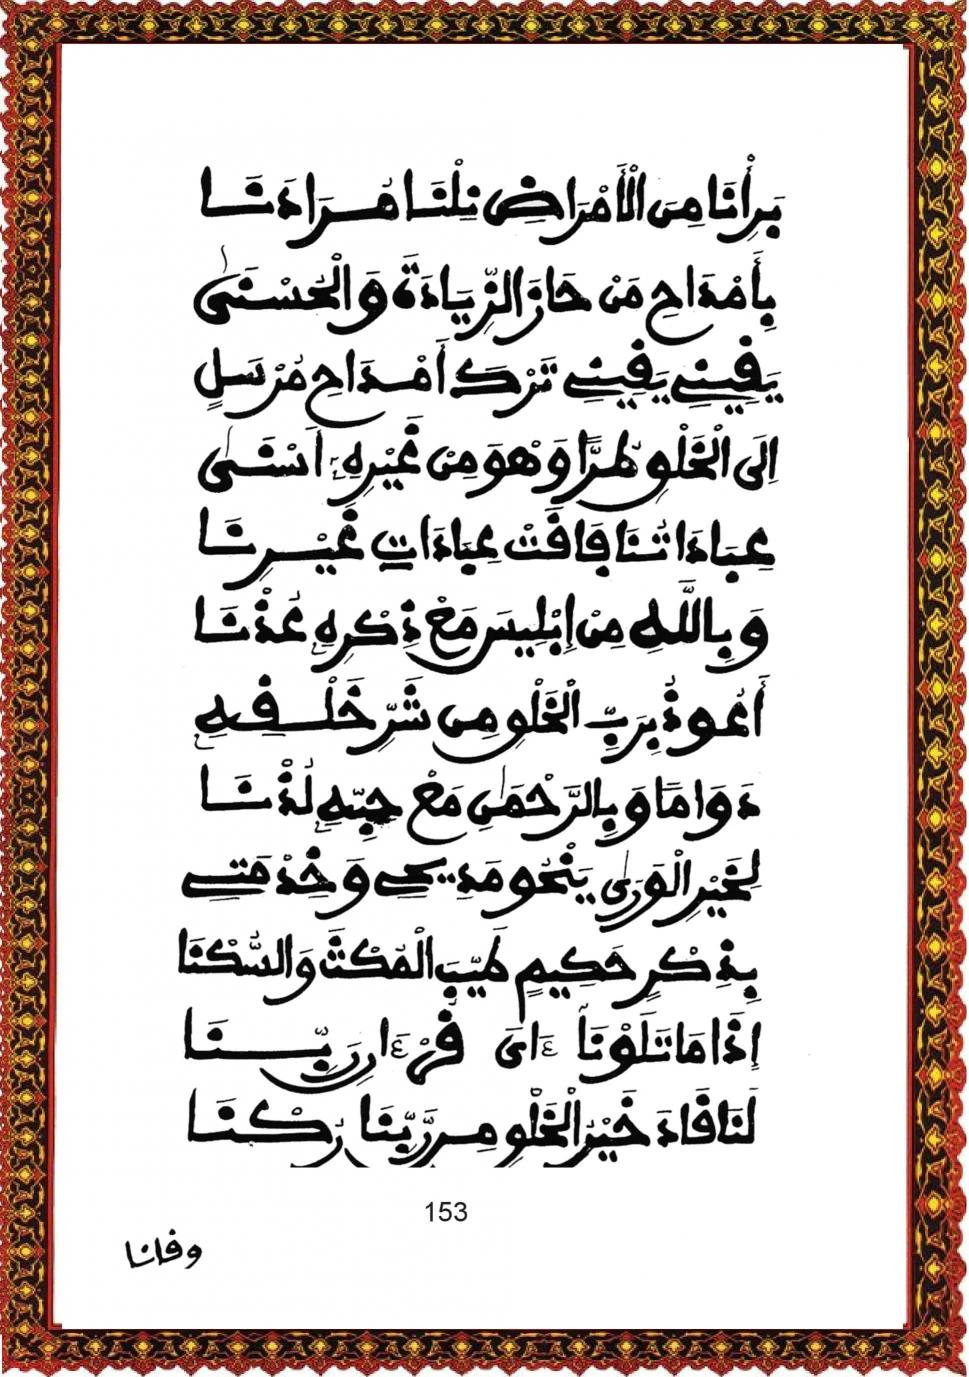 بَرِأْنَا مِنَ الْأَمْرَاضِ نِلْنَا مُرَادَنَا
بِأَمْدَاحِ مَنْ حَازَ الزِّيَادَةَ وَالْحُسْنَىٰ
يَقِينِي يَقِينِي تَرْكَ أَمْدَاحِ مُرْسَلٍ
إِلَى الْخَلْقِ طُرًّا وَهْوَ مِنْ غَيْرِهِ أَسْنَىٰ
عِبَادَاتُنَا فَاقَتْ عِبَادَاتِ غَيْرِنَا
وَبِاللَّهِ مِنْ إِبْلِيسَ مَعْ ذِكْرِهِ عُذْنَا
أَعُوذُ بِرَبِّ الْخَلْقِ مِن شَرِّ خَلْقِهِ
دَوَامًا وَبِالرَّحْمَٰنِ مَعْ حِبِّهِ لُذْنَا
لِخَيْرِ الْوَرَىٰ يَنْحُو مَدِيحِي وَخِدْمَتِي
بِذِكْرٍ حَكِيمٍ طَيِّبَ الْمُكْثَ وَالسُّكْنَا
إِذَا مَا تَلَوْنَا ءَايَ قُرْءَانِ رَبِّنَا
لَنَا قَادَ خَيْرُ الْخَلْقِ مِن رَّبِّنَا رُكْنَا
153
وقانا